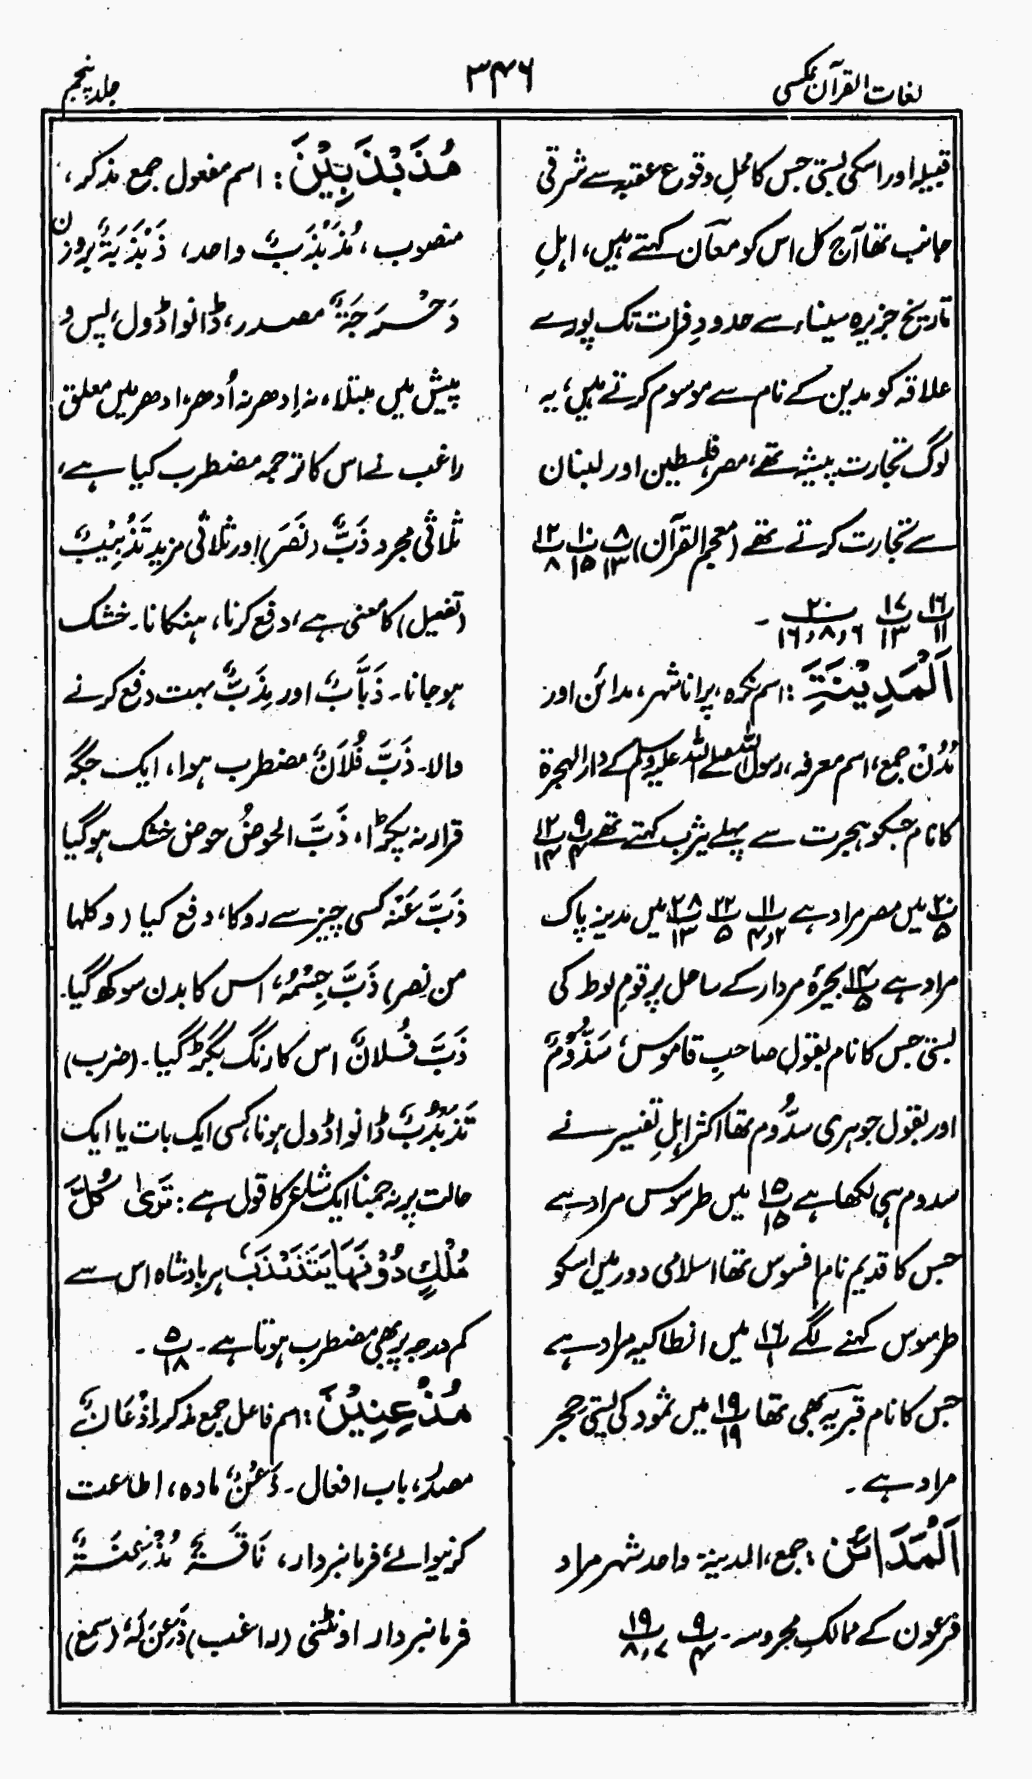 لغات القرآن عکسی
۳۴۶
جلد پنجم
قبیلہ اور اسکی بستی جس کا محلِ وقوع عقبہ سے شرقی
جانب تھا آج کل اس کو معان کہتے ہیں، اہلِ
تاریخ جزیرہ سیناء سے حدودِ فرات تک پورے
علاقہ کو مدین کے نام سے موسوم کرتے ہیں، یہ
لوگ تجارت پیشہ تھے، مصر، فلسطین اور لبنان
سے تجارت کرتے تھے (معجم القرآن) پ۸/۱۳ پ۱۰/۱۵ پ۱۲/۸
پ۱۶/۱۱ پ۱۷/۱۳ پ۲۰/۶،۸،۱۶ ۔
اَلْمَدِیْنَۃِ: اسم نکرہ، پرانا شہر، مدائن اور
مُدُنٌ جمع، اسم معرفہ، رسول اللہ صلے اللہ علیہ وسلم کے دارالہجرۃ
کا نام جسکو ہجرت سے پہلے یثرب کہتے تھے پ۹/۴ پ۱۲/۱۴
پ۲۰/۵ میں مصر مراد ہے پ۱۱/۲،۴ پ۲۲/۵ پ۲۸/۱۳ میں مدینہ پاک
مراد ہے پ۱۴/۵ بحیرۂ مردار کے ساحل پر قومِ لوط کی
بستی جس کا نام بقول صاحبِ قاموس سَذُوْمُ
اور بقول جوہری سدُوم تھا اکثر اہلِ تفسیر نے
سدوم ہی لکھا ہے پ۱۵/۱۵ میں طرسوس مراد ہے
جس کا قدیم نام افسوس تھا اسلامی دور میں اسکو
طرسوس کہنے لگے پ۱۶/۱ میں انطاکیہ مراد ہے
جس کا نام قبریہ بھی تھا پ۱۹/۱۹ میں ثمود کی بستی حجر
مراد ہے ۔
اَلْمَدَائِنِ: جمع، المدینۃ واحد شہر مراد
فرعون کے ممالکِ محروسہ۔ پ۹/۴ پ۱۹/۷،۸
مُذَبْذَبِیْنَ: اسم مفعول جمع مذکر،
منصوب، مُذَبْذَبٌ واحد، ذَبْذَبَۃٌ بروزن
دَحْرَجَۃٌ مصدر، ڈانواڈول، پس و
پیش میں مبتلاء، نہ اِدھر نہ اُدھر، ادھر میں معلق
راغب نے اس کا ترجمہ مضطرب کیا ہے،
ثلاثی مجرد ذَبٌّ (نَصَرَ) اور ثلاثی مزید تَذْبِیْبٌ
(تفعیل) کا معنی ہے، دفع کرنا، ہنکانا۔ خشک
ہوجانا۔ ذَبَّابٌ اور مِذَبٌّ بہت دفع کرنے
والا۔ ذَبَّ فُلَانٌ مضطرب ہوا، ایک جگہ
قرار نہ پکڑا، ذَبَّ الحوضُ حوض خشک ہوگیا
ذَبَّ عَنْہُ کسی چیز سے روکا، دفع کیا (وکلہا
من نصر) ذَبَّ جِسْمُہٗ، اس کا بدن سوکھ گیا۔
ذَبَّ فُلانٌ اس کا رنگ بگڑ گیا۔ (ضرب)
تَذَبْذُبٌ ڈانواڈول ہونا، کسی ایک بات یا ایک
حالت پر نہ جمنا ایک شاعر کا قول ہے: تَریٰ کُلَّ
مُلْکٍ دُوْنَہَا یَتَذَبْذَبُ ہر بادشاہ اس سے
کم درجہ پر بھی مضطرب ہوتا ہے۔ پ۵/۱۸ ۔
مُذْعِنِیْنَ: اسم فاعل جمع مذکر اِذْعَانٌ
مصدر، باب افعال۔ ذَعْنٌ مادہ، اطاعت
کرنیوالے، فرمانبردار، نَاقَۃٌ مُذْعِنَۃٌ
فرمانبردار اونٹنی (راغب) ذَعِنَ لَہٗ (سمع)